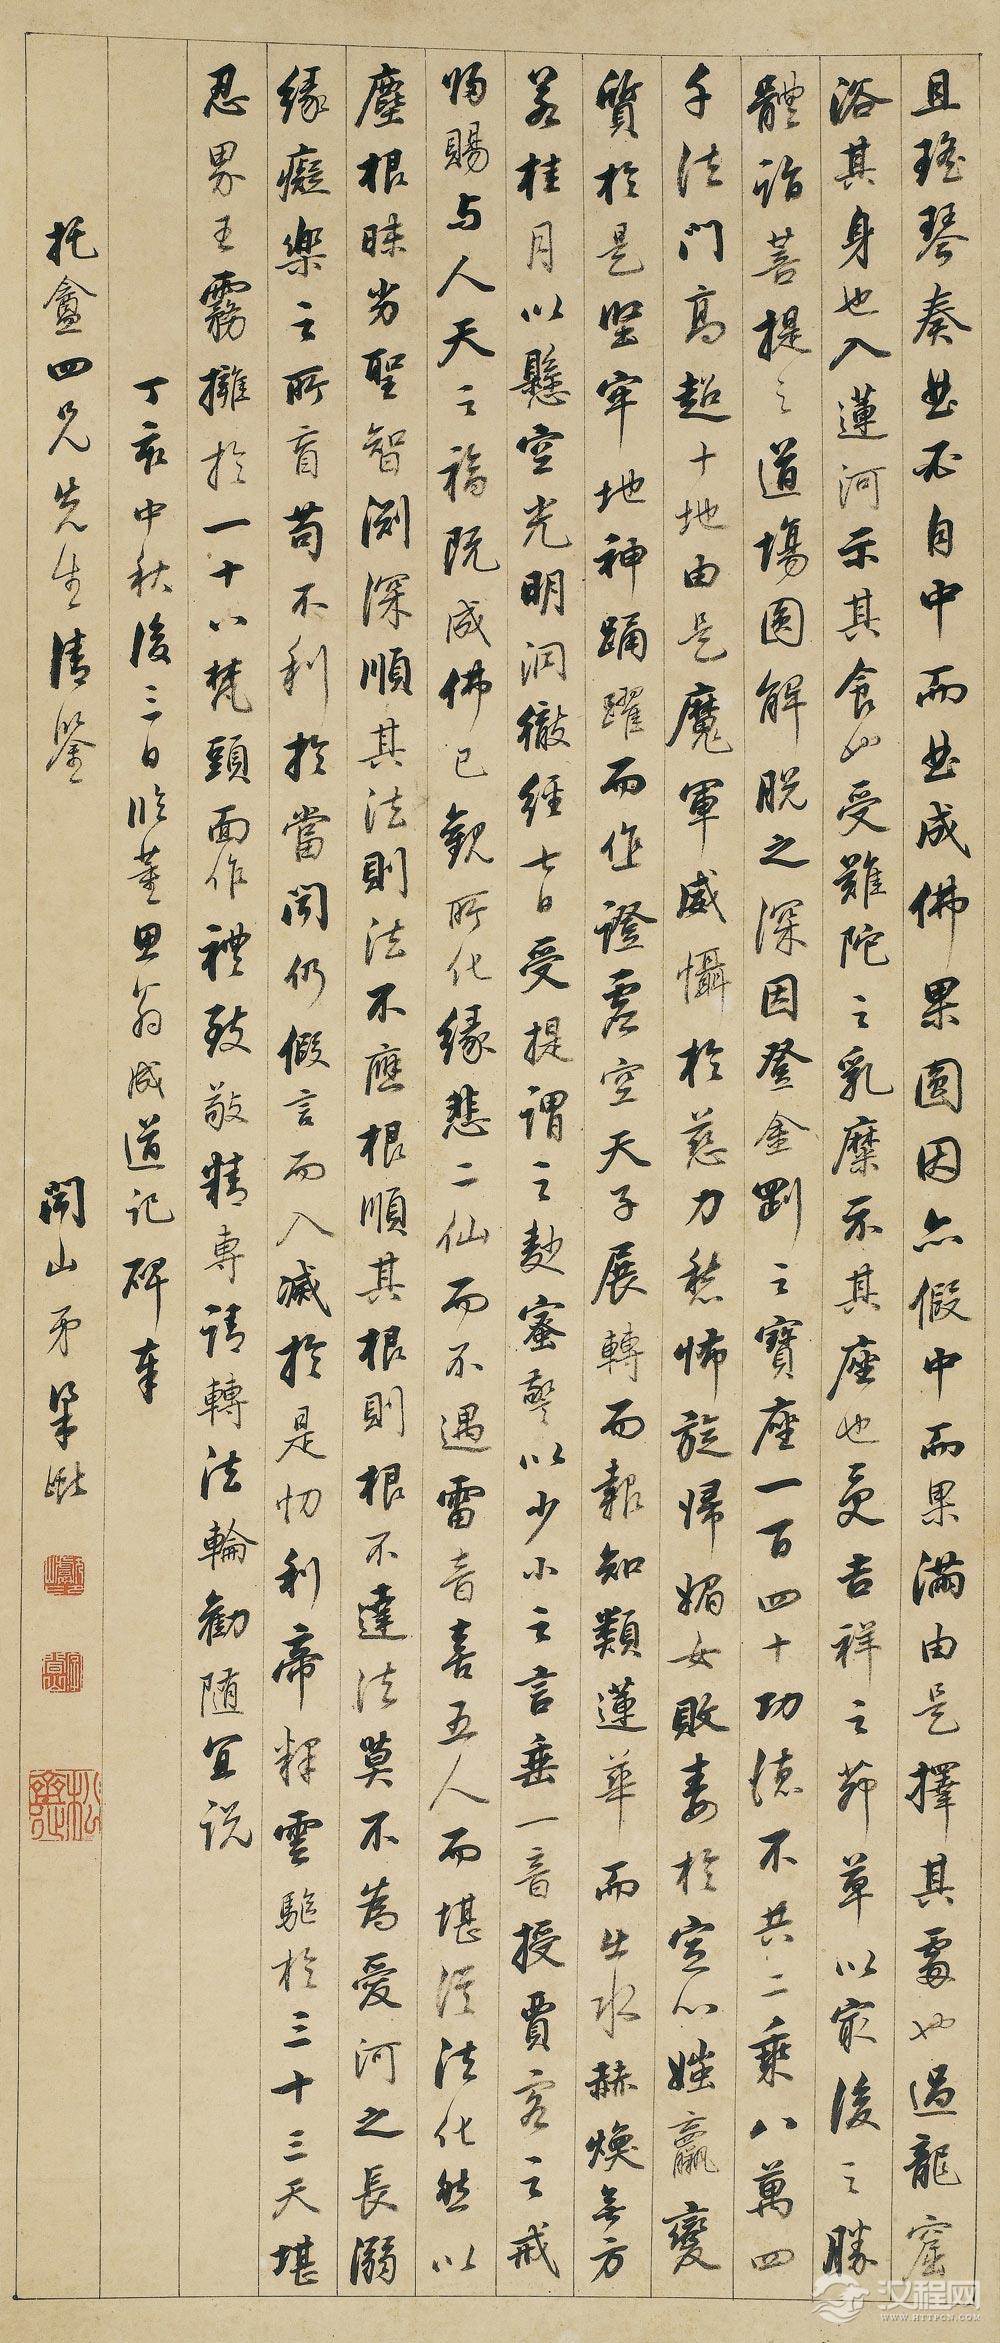 且瑤琴奏曲不自中而曲成佛果圓因亦假中而果滿由是擇其處也過龍窟
浴其身也入蓮河示其食也受難陀之乳糜示其座也受吉祥之茆草以最後之勝
體詣菩提之道場圓解脫之深因登金剛之寶座一百四十功德不共二乘八萬四
千法門高超十地由是魔軍威懾於慈力愁怖旋歸媚女敗毒於定心媸羸變
質於是堅牢地神踊躍而作證虛空天子展轉而報知類蓮華而出水赫煥無方
若桂月以懸空光明洞徹經七日受提謂之麨蜜警以少小之言垂一音授賈客之戒
歸賜與人天之福既成佛已觀所化緣悲二仙而不遇雷音喜五人而堪從法化然以
塵根昧劣聖智淵深順其法則法不應根順其根則根不達法莫不為愛河之長溺
緣癡樂之所盲苟不利於當聞仍假言而入滅於是忉利帝釋雲驅於三十三天堪
忍界王霧擁於一十八梵頭面作禮致敬精專請轉法輪勸隨宜說
丁亥中秋後三日臨董思翁成道記碑奉
托盦四兄先生清鑒
聞山弟梁巘
松齋
汉程网
WWW.HTTPCN.COM